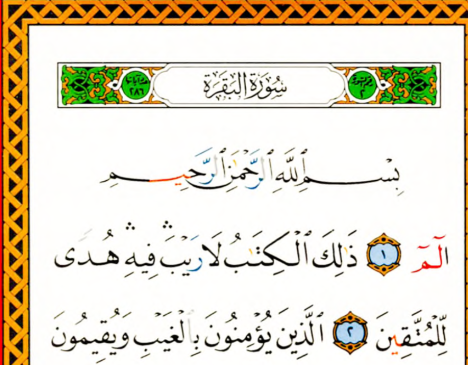 سُورَةُ البَقَرَةِ ٢٨٦
بِسْمِ ٱللَّهِ ٱلرَّحْمَٰنِ ٱلرَّحِيمِ
الٓمٓ ١ ذَٰلِكَ ٱلْكِتَٰبُ لَا رَيْبَ ۛ فِيهِ ۛ هُدًى
لِّلْمُتَّقِينَ ٢ ٱلَّذِينَ يُؤْمِنُونَ بِٱلْغَيْبِ وَيُقِيمُونَ